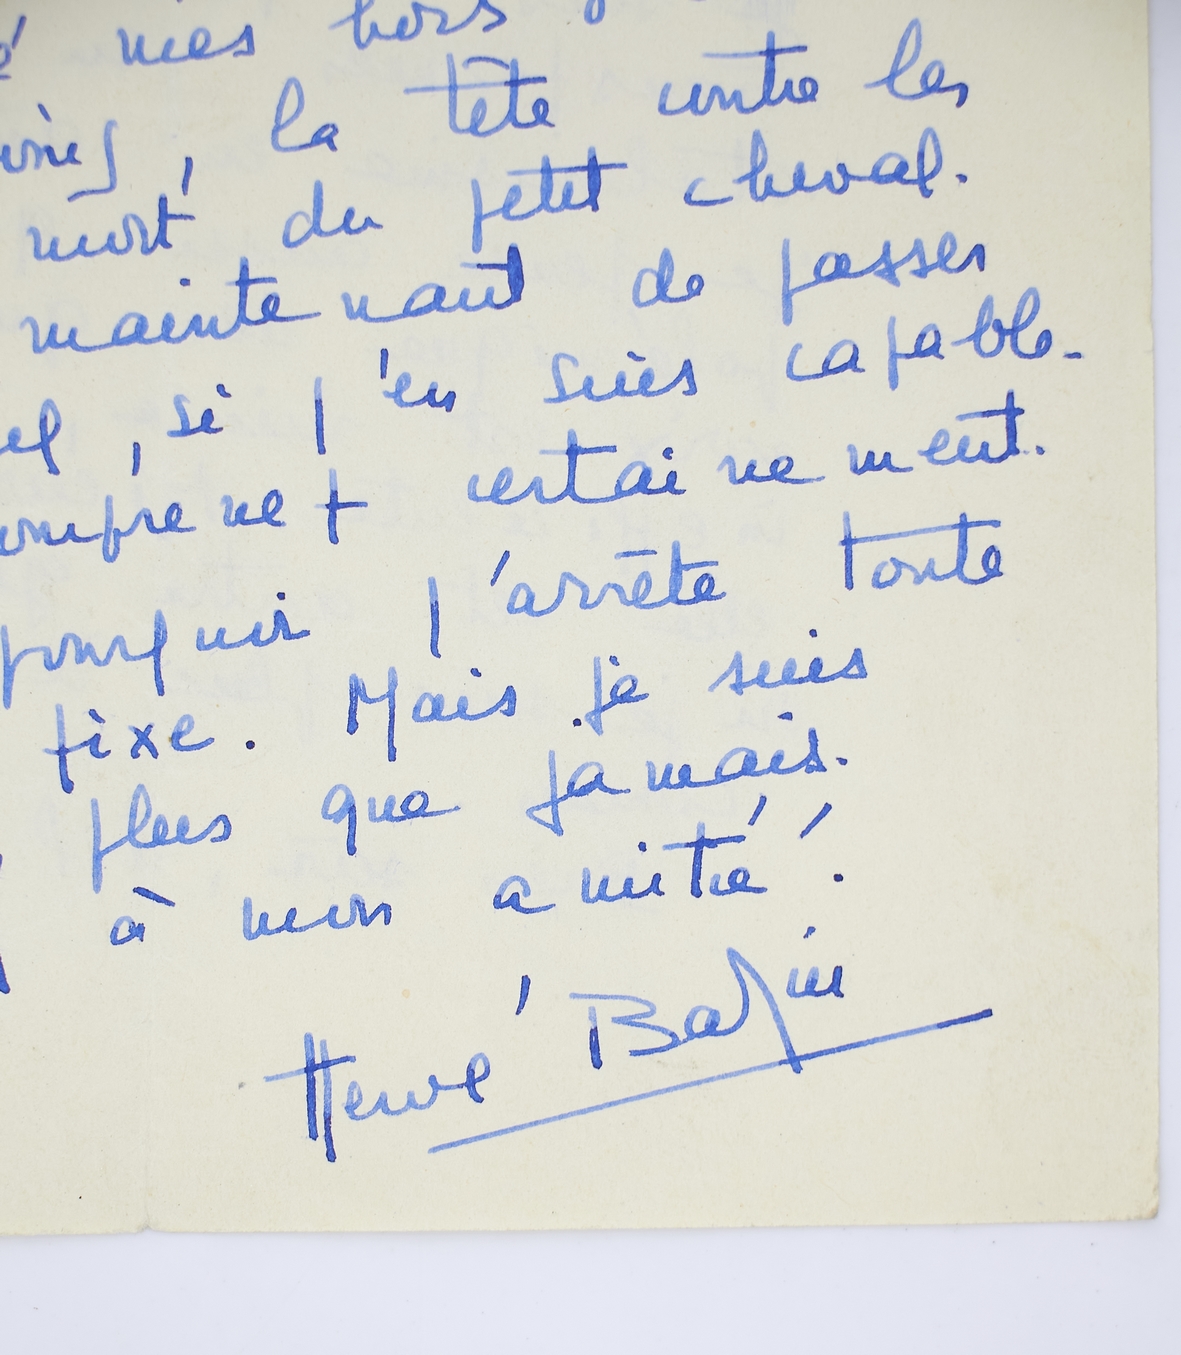 mes hors
, la tête contre les
mort du petit cheval.
maintenant de passer
el, si j'en suis capable.
omprenez certainement.
pourquoi j'arrête toute
fixe. Mais je suis
plus que jamais.
à mon amitié !
Hervé Bazin